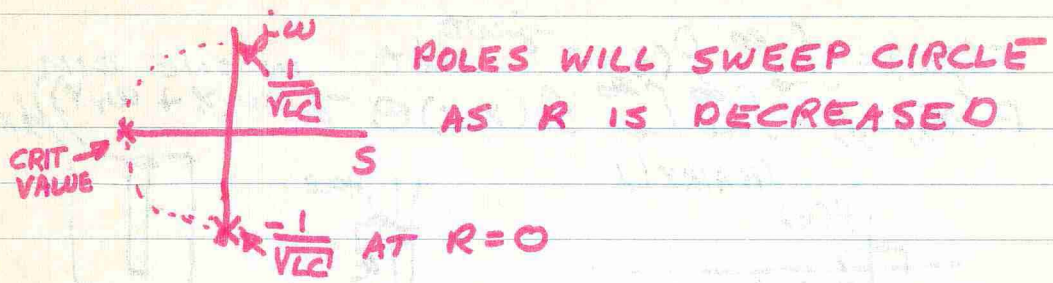 jω
POLES WILL SWEEP CIRCLE
1/√LC
AS R IS DECREASED
CRIT → VALUE
S
-1/√LC AT R=0